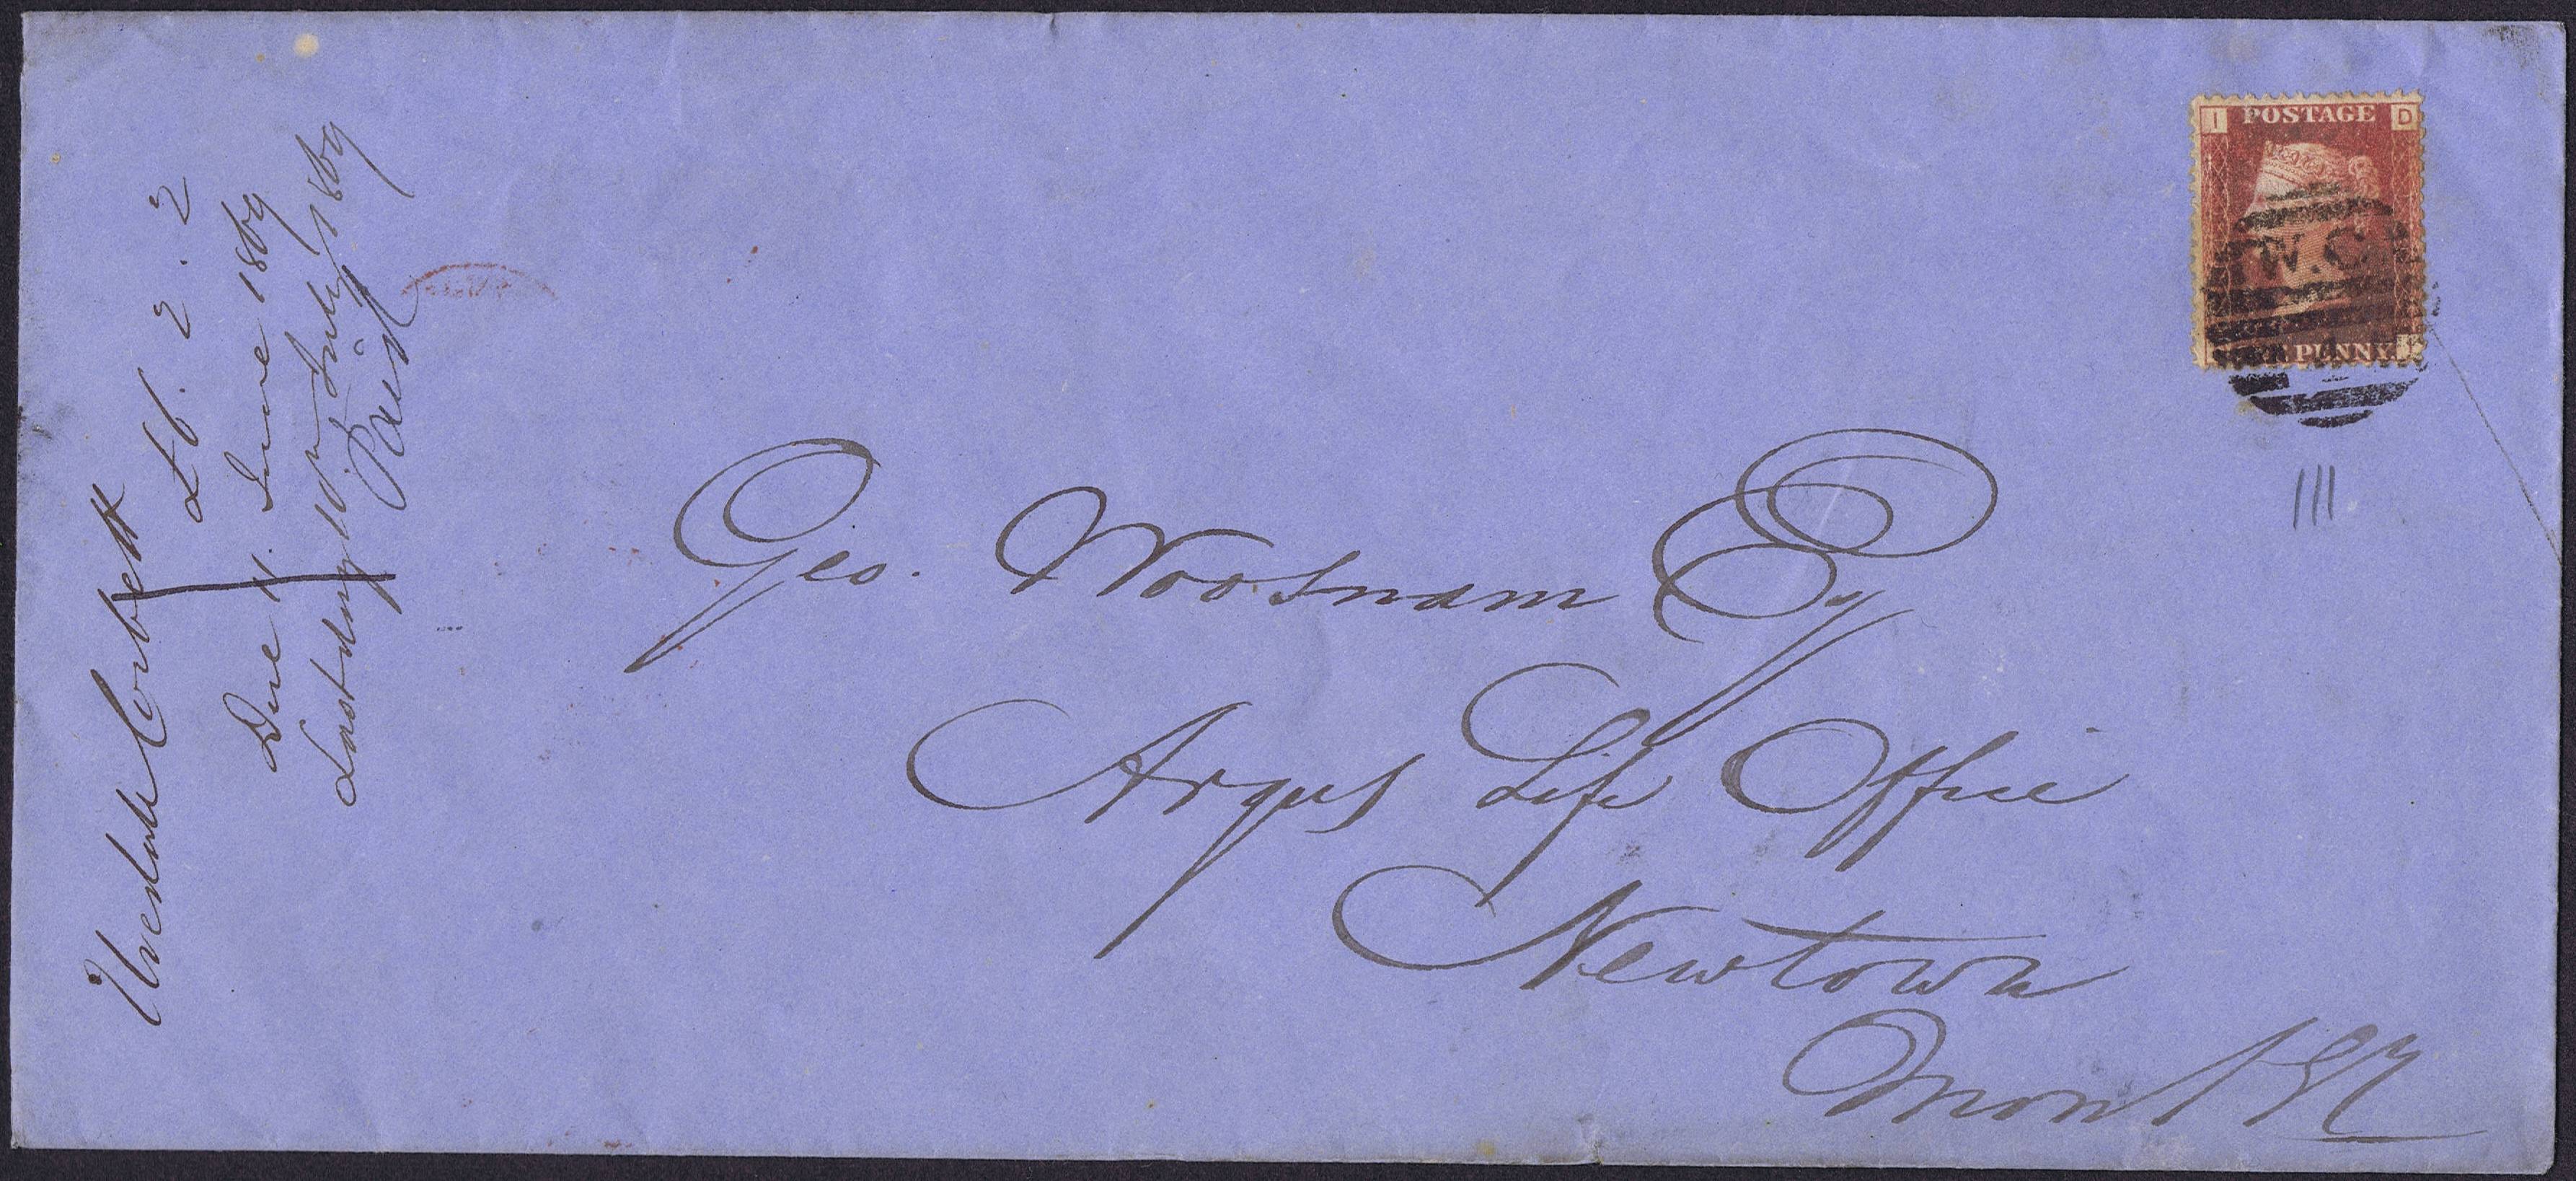 I POSTAGE D
W.C
PENNY
111
Geo. Woosnam Esq
Argus Life Office
Newtown
Mont
Corbett
£6. 2. 2
Due 1. June 1869
Last day 10 July 1869
Paid